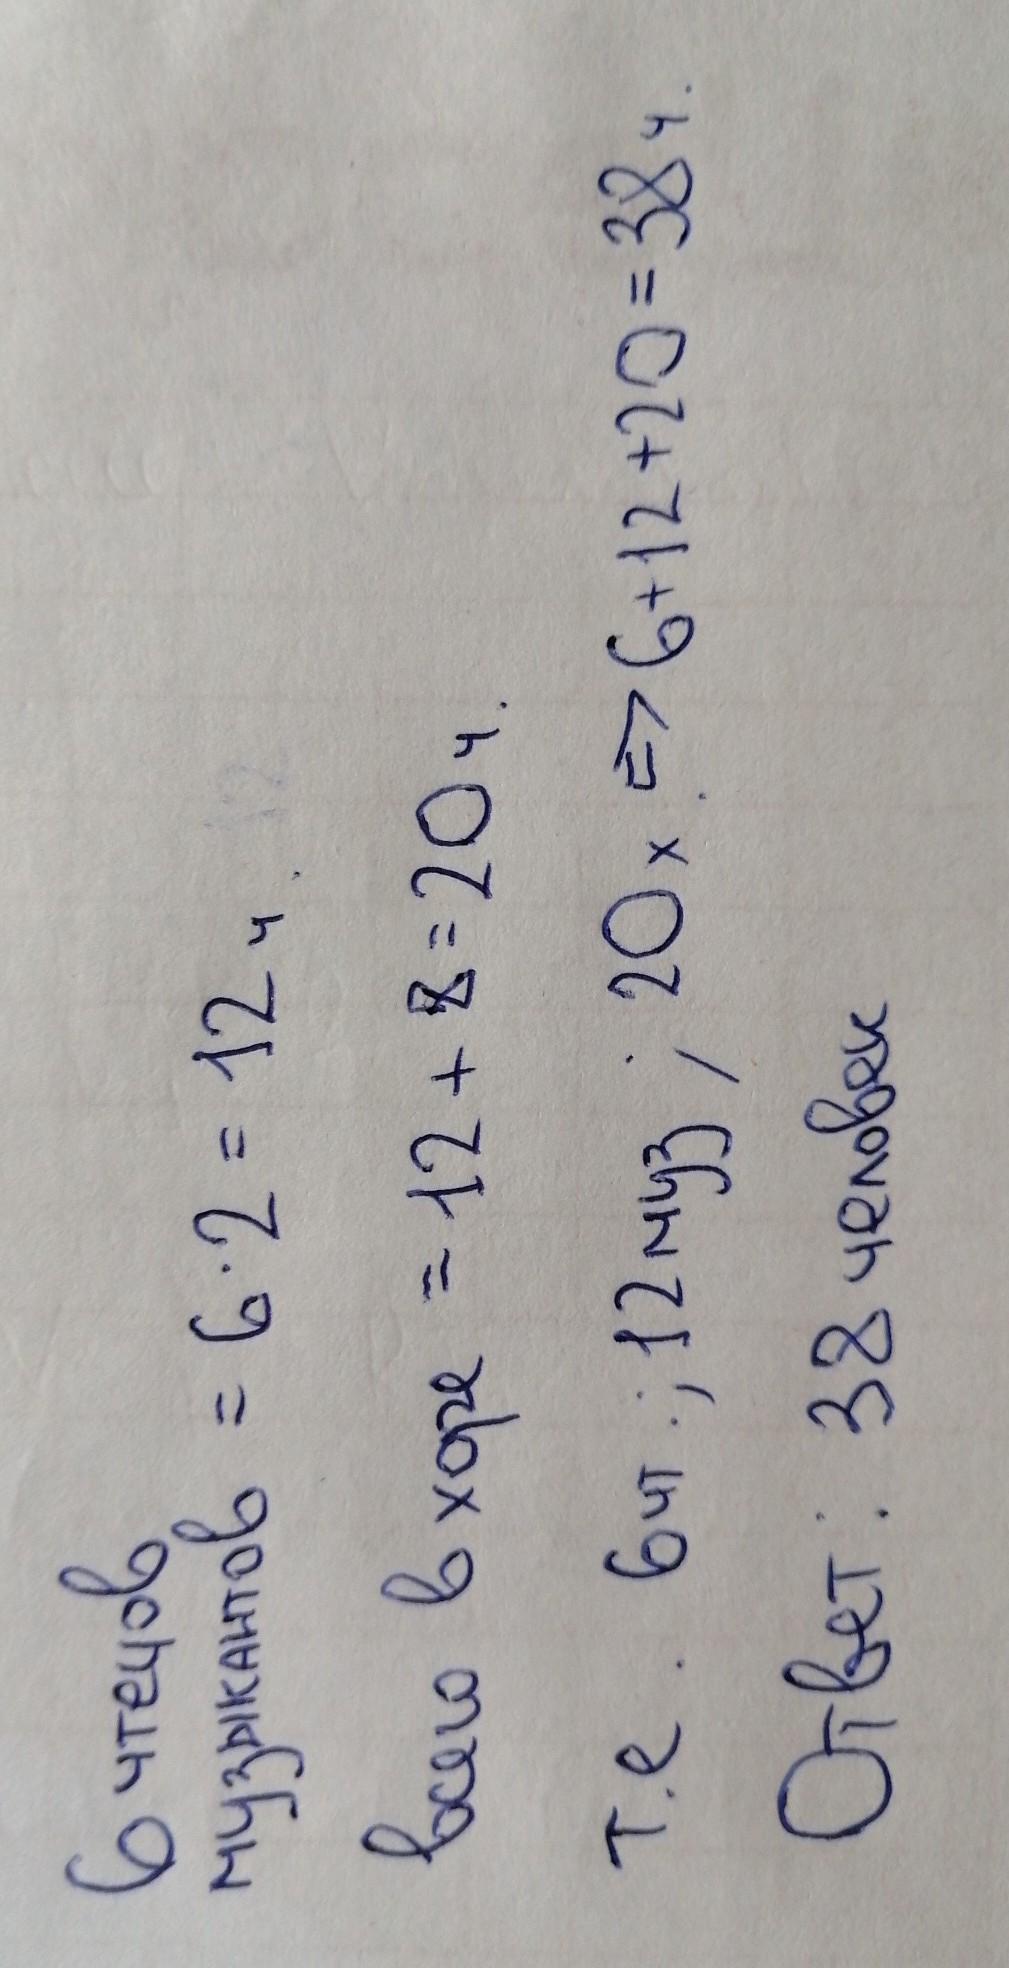 6 чтецов
музыкантов = 6·2 = 12 ч.
всего в хоре = 12 + 8 = 20 ч.
т.е. 6 чт.; 12 муз; 20 х. => 6+12+20=38 ч.
Ответ: 38 человек